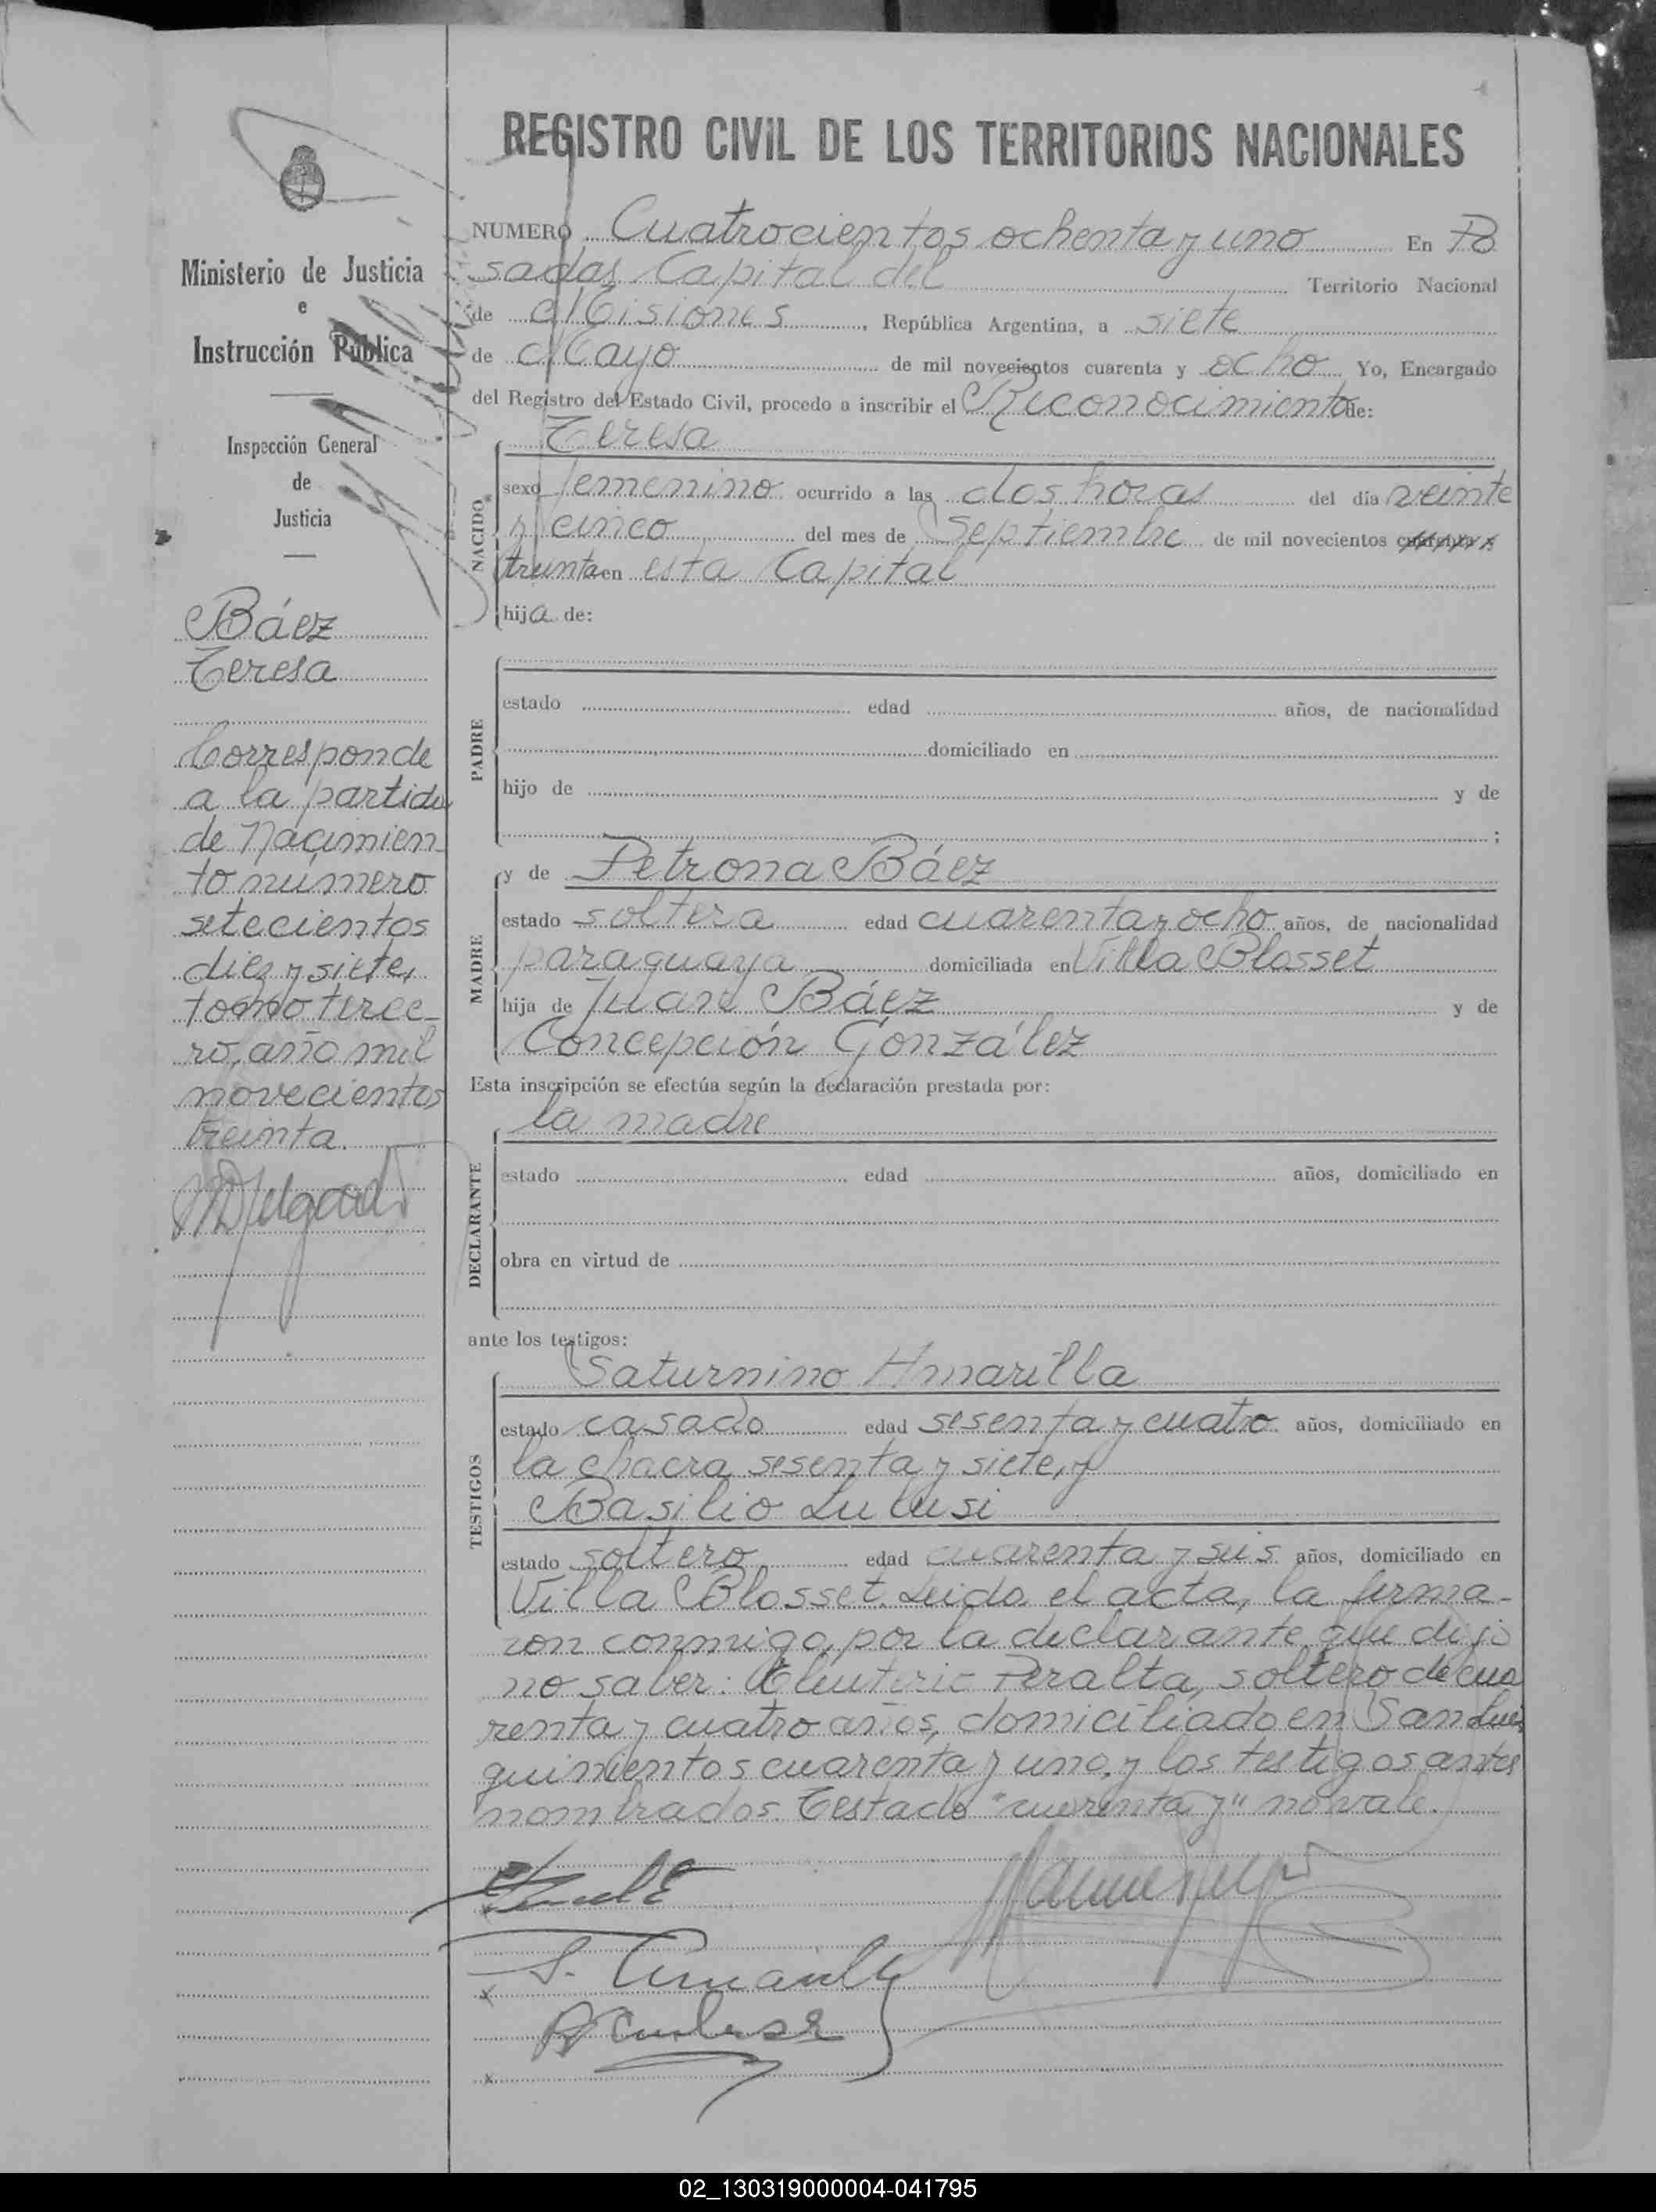 REGISTRO CIVIL DE LOS TERRITORIOS NACIONALES
Ministerio de Justicia
e
Instrucción Pública
Inspección General
de
Justicia
Báez
Teresa
Corresponde
a la partida
de Nacimien
to número
setecientos
diez y siete,
tomo terce-
ro, año mil
novecientos
treinta.
NUMERO Cuatrocientos ochenta y uno En Po
sadas Capital del Territorio Nacional
de Misiones, República Argentina, a siete
de Mayo de mil novecientos cuarenta y ocho Yo, Encargado
del Registro del Estado Civil, procedo a inscribir el Reconocimiento de:
NACIDO
Teresa
sexo femenino ocurrido a las dos horas del día veinte
y cinco del mes de Septiembre de mil novecientos
treinta en esta Capital
hija de:
PADRE
estado edad años, de nacionalidad
domiciliado en
hijo de y de
;
MADRE
y de Petrona Báez
estado soltera edad cuarenta y ocho años, de nacionalidad
paraguaya domiciliada en Villa Blosset
hija de Juan Báez y de
Concepción González
Esta inscripción se efectúa según la declaración prestada por:
DECLARANTE
la madre
estado edad años, domiciliado en
obra en virtud de
ante los testigos:
TESTIGOS
Saturnino Amarilla
estado casado edad sesenta y cuatro años, domiciliado en
la chacra sesenta y siete, y
Basilio
estado soltero edad cuarenta y seis años, domiciliado en
Villa Blosset. Leida el acta, la firma-
ron conmigo, por la declarante que dijo
no saber: Eleuterio Peralta, soltero de cua
renta y cuatro años, domiciliado en San Luis
quinientos cuarenta y uno, y los testigos antes
nombrados. Testado "cuarenta y" no vale.
02_130319000004-041795